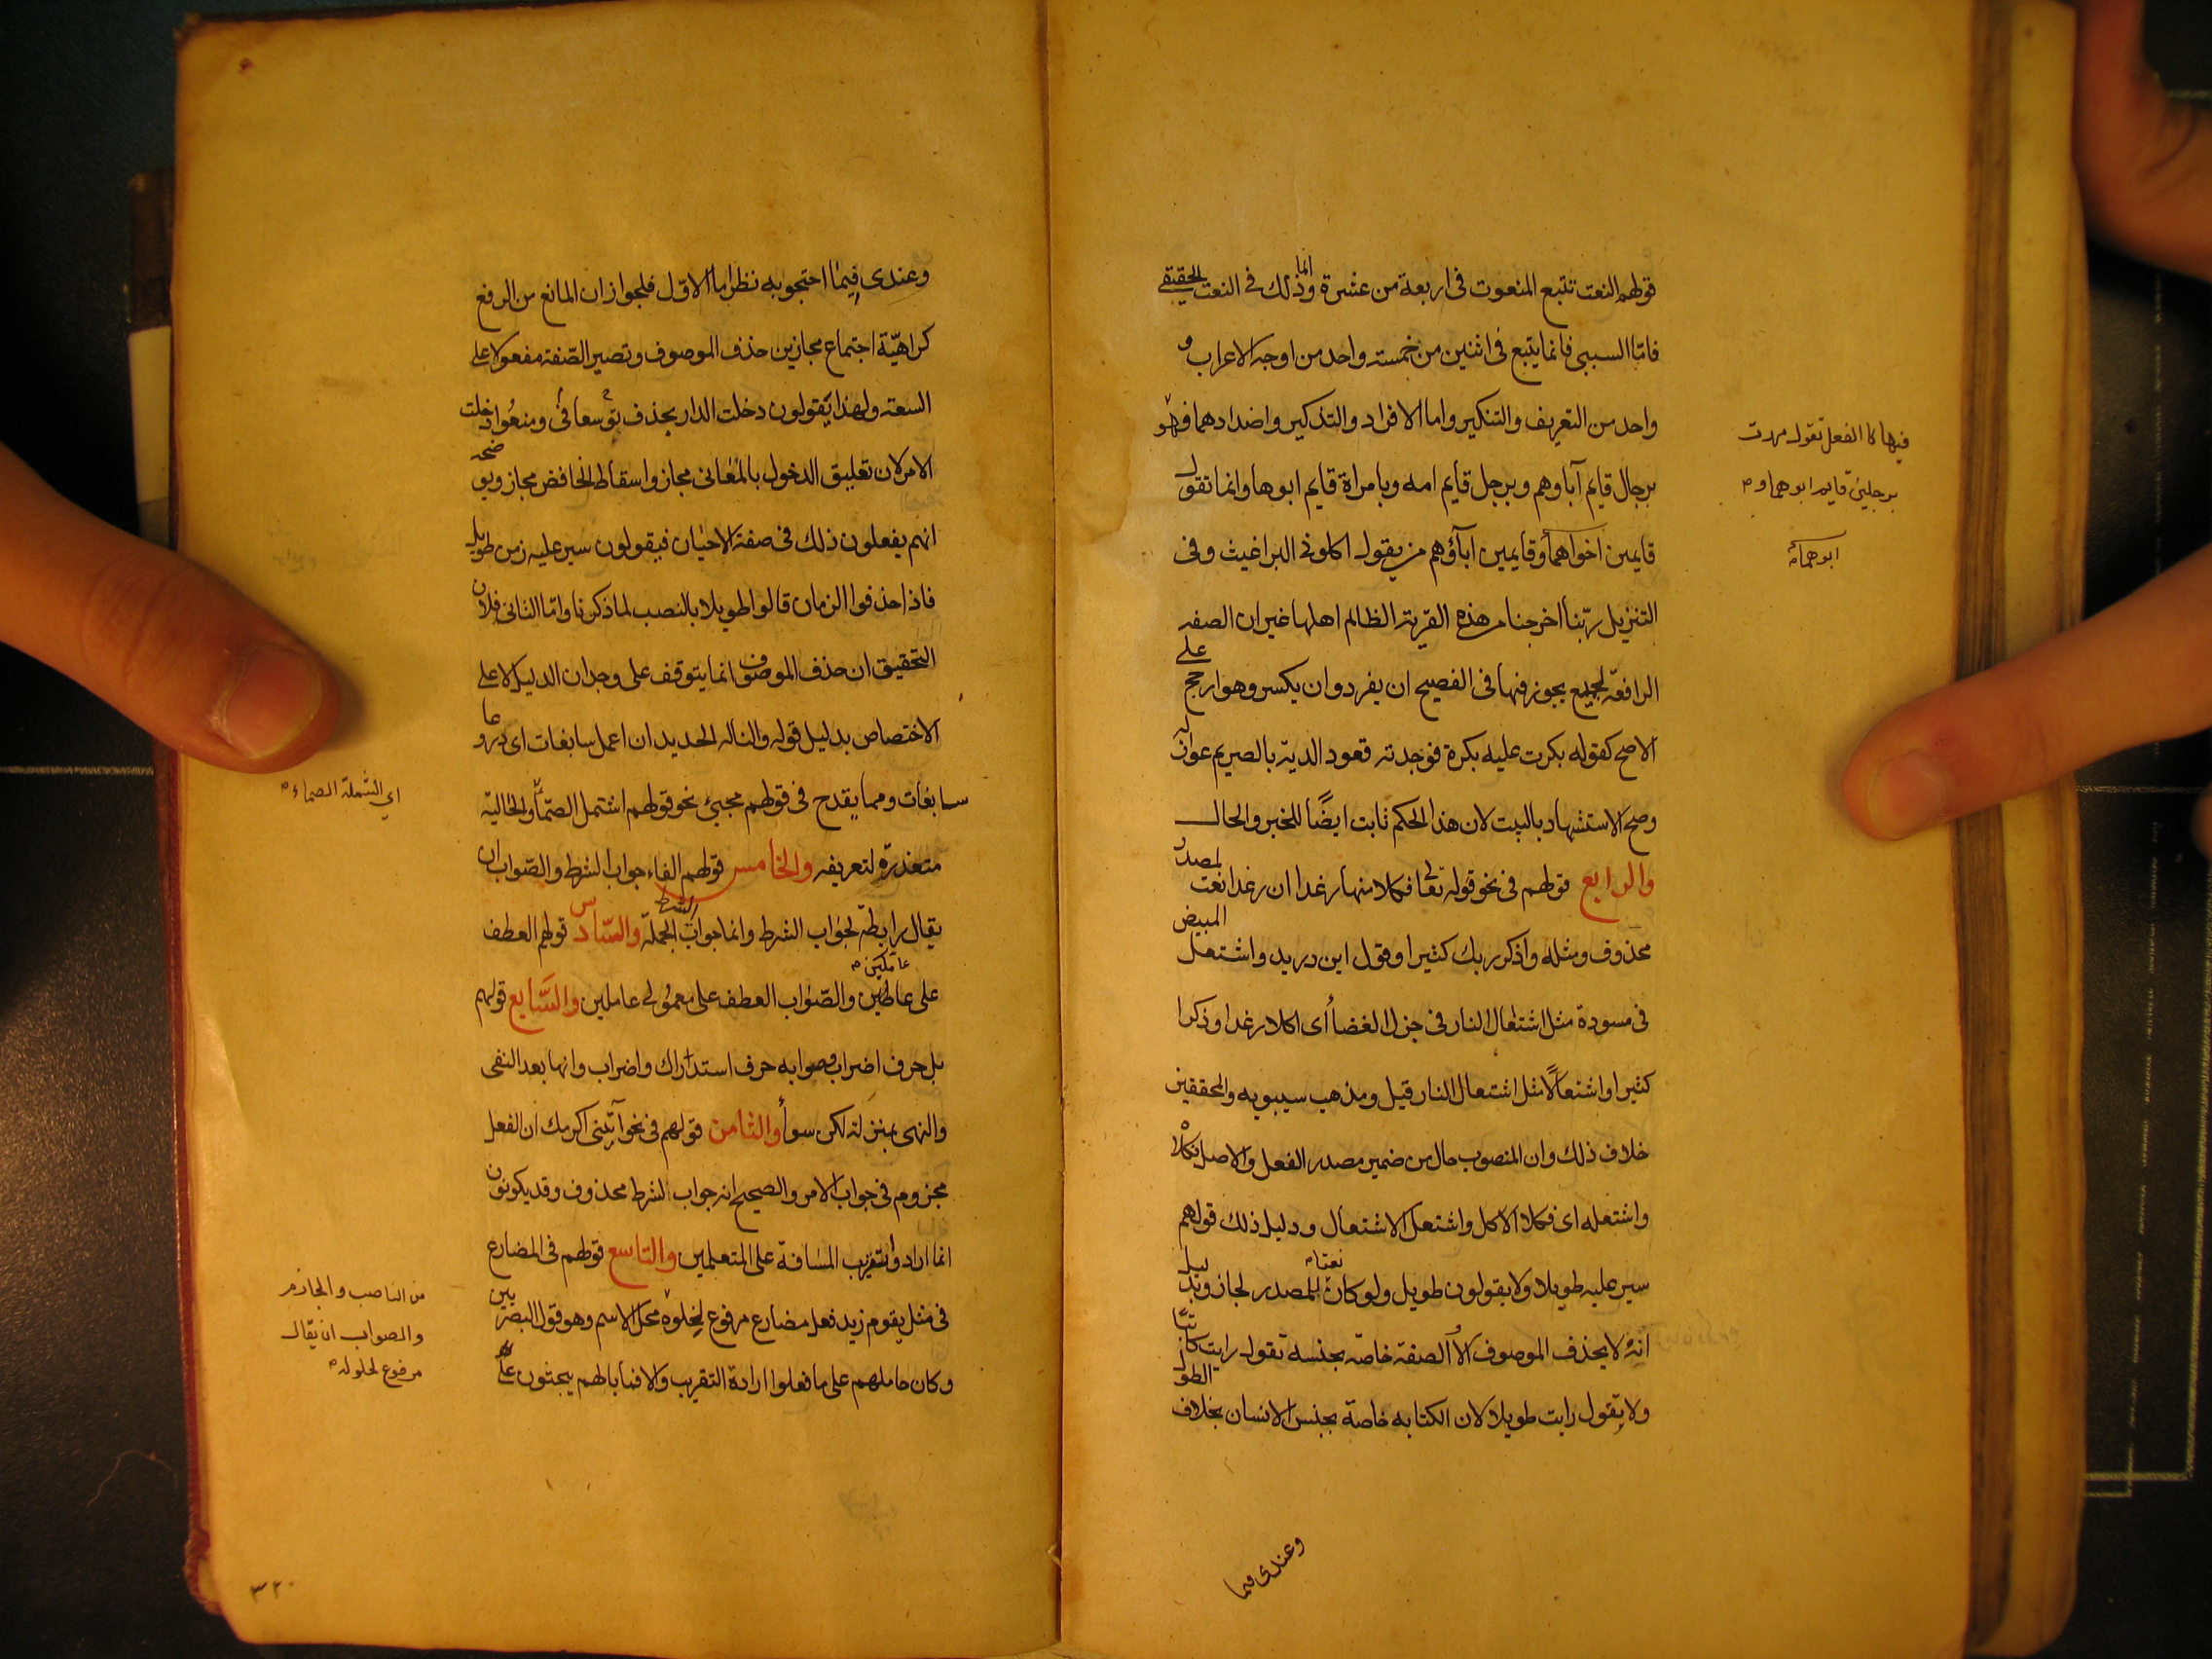 قولهم النعت تتبع المنعوت فى اربعة من عشرة وانما ذلك فى النعت الحقيقى
فامّا السببى فانما يتبع فى اثنين من خمسة واحد من اوجه الاعراب و
واحد من التعريف والتنكير واما الافراد والتذكير واضدادهما فهو
فيها كالفعل تقول مررت
برجلين قايم ابوهما و
برجال قايم آباوهم وبرجل قايم امه وبامراة قايم ابوها وانما تقول
قايمين اخواهما وقايمين آباؤهم من يقول اكلونى البراغيث وفى
ابوهما
التنزيل ربّنا اخرجنا من هذه القرية الظالم اهلها غير ان الصفه
الرافعة لجميع يجوز فيها فى الفصيح ان يفرد وان يكسر وهو ارجح على
الاصح كقوله بكرت عليه بكرة فوجدته قعود الديه بالصريم عواذله
وصح الاستشهاد بالبيت لان هذا الحكم ثابت ايضًا للخبر والحال
والرابع قولهم فى نحو قوله تعالى فكلا منها رغدا ان رغدا نعت لمصدر
محذوف ومثله واذكر ربك كثيرا وقول ابن دريد واشتعل المبيض
فى مسودة مثل اشتعال النار فى جزل الغضا أى اكلا رغدا وذكرا
كثيرا واشتعالًا مثل اشتعال النار قيل ومذهب سيبويه والمحققين
خلاف ذلك وان المنصوب حال من ضمير مصدر الفعل والاصل فكلاه
واشتعله اى فكلا الاكل واشتعل الاشتعال ودليل ذلك قولهم
سير عليه طويلا ولا يقولون طويل ولو كان نعتا للمصدر لجاز وبدليل
انه لا يحذف الموصوف الا والصفة خاصّة بجنسه تقول رايت كاتبًا
ولا يقول رايت طويلا لان الكتابه خاصّة بجنس الانسان بخلاف الطول
وعندى فيما
وعندى فيما احتجوبه نظر اما الاوّل فلجواز ان المانع من الرفع
كراهيّة اجتماع مجازين حذف الموصوف وتصير الصّفة مفعولا على
السعة ولهذا يقولون دخلت الدار بحذف فى توسعا ومنعوا دخلت
الامر لان تعليق الدخول بالمعانى مجاز واسقاط الخافض مجاز ويوضحه
انهم يفعلون ذلك فى صفة الاحيان فيقولون سير عليه زمن طويل
فاذا حذفوا الزمان قالوا طويلا بالنصب لما ذكرنا وامّا الثانى فلان
التحقيق ان حذف الموصوف انما يتوقف على وجدان الدليل لا على
الاختصاص بدليل قوله والنا له الحديد ان اعمل سابغات اى دروعا
سابغات ومما يقدح فى قولهم مجىء نحو قولهم اشتمل الصّمّاء والحاليّة
اى الشملة الصماء
متعذرة لتعريفه والخامس قولهم الفاء جواب الشرط والصّواب ان
يقال رابطة لجواب الشرط وانما جواب الشرط الجملة والسّادس قولهم العطف
على عاملين والصّواب العطف على معمولى عاملين والسّابع قولهم
بل حرف اضراب وصوابه حرف استدراك واضراب وانها بعد النفى
والنهى بمنزلة لكن سوأ والثامن قولهم فى نحو آتينى اكرمك ان الفعل
مجزوم فى جواب الامر والصحيح انه جواب لشرط محذوف وقد يكونون
انما ارادوا تقريب المسافة على المتعلمين والتاسع قولهم فى المضارع
فى مثل يقوم زيد فعل مضارع مرفوع لخلوه محل الاسم وهو قول البصريين
من الناصب والجازم
والصواب ان يقال
مرفوع لحلوله
وكان حاملهم على ما فعلوا ارادة التقريب والا فما بالهم يبحثون على
٣٢٠